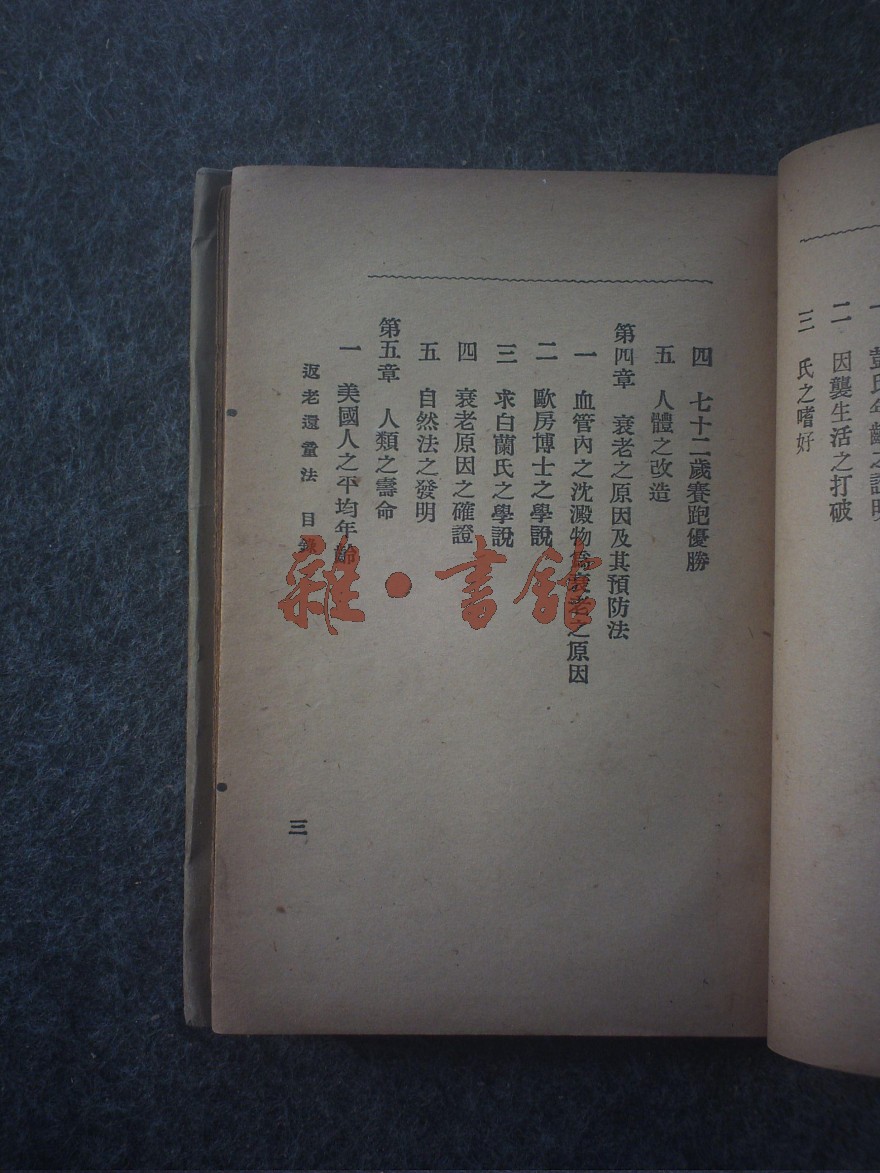 二　因襲生活之打破
三　氏之嗜好
四　七十二歲賽跑優勝
五　人體之改造
第四章　衰老之原因及其預防法
一　血管內之沈澱物爲衰老之原因
二　歐房博士之學說
三　求白蘭氏之學說
四　衰老原因之確證
五　自然法之發明
第五章　人類之壽命
一　美國人之平均年齡
返老還童法　目錄
三
雜·書館